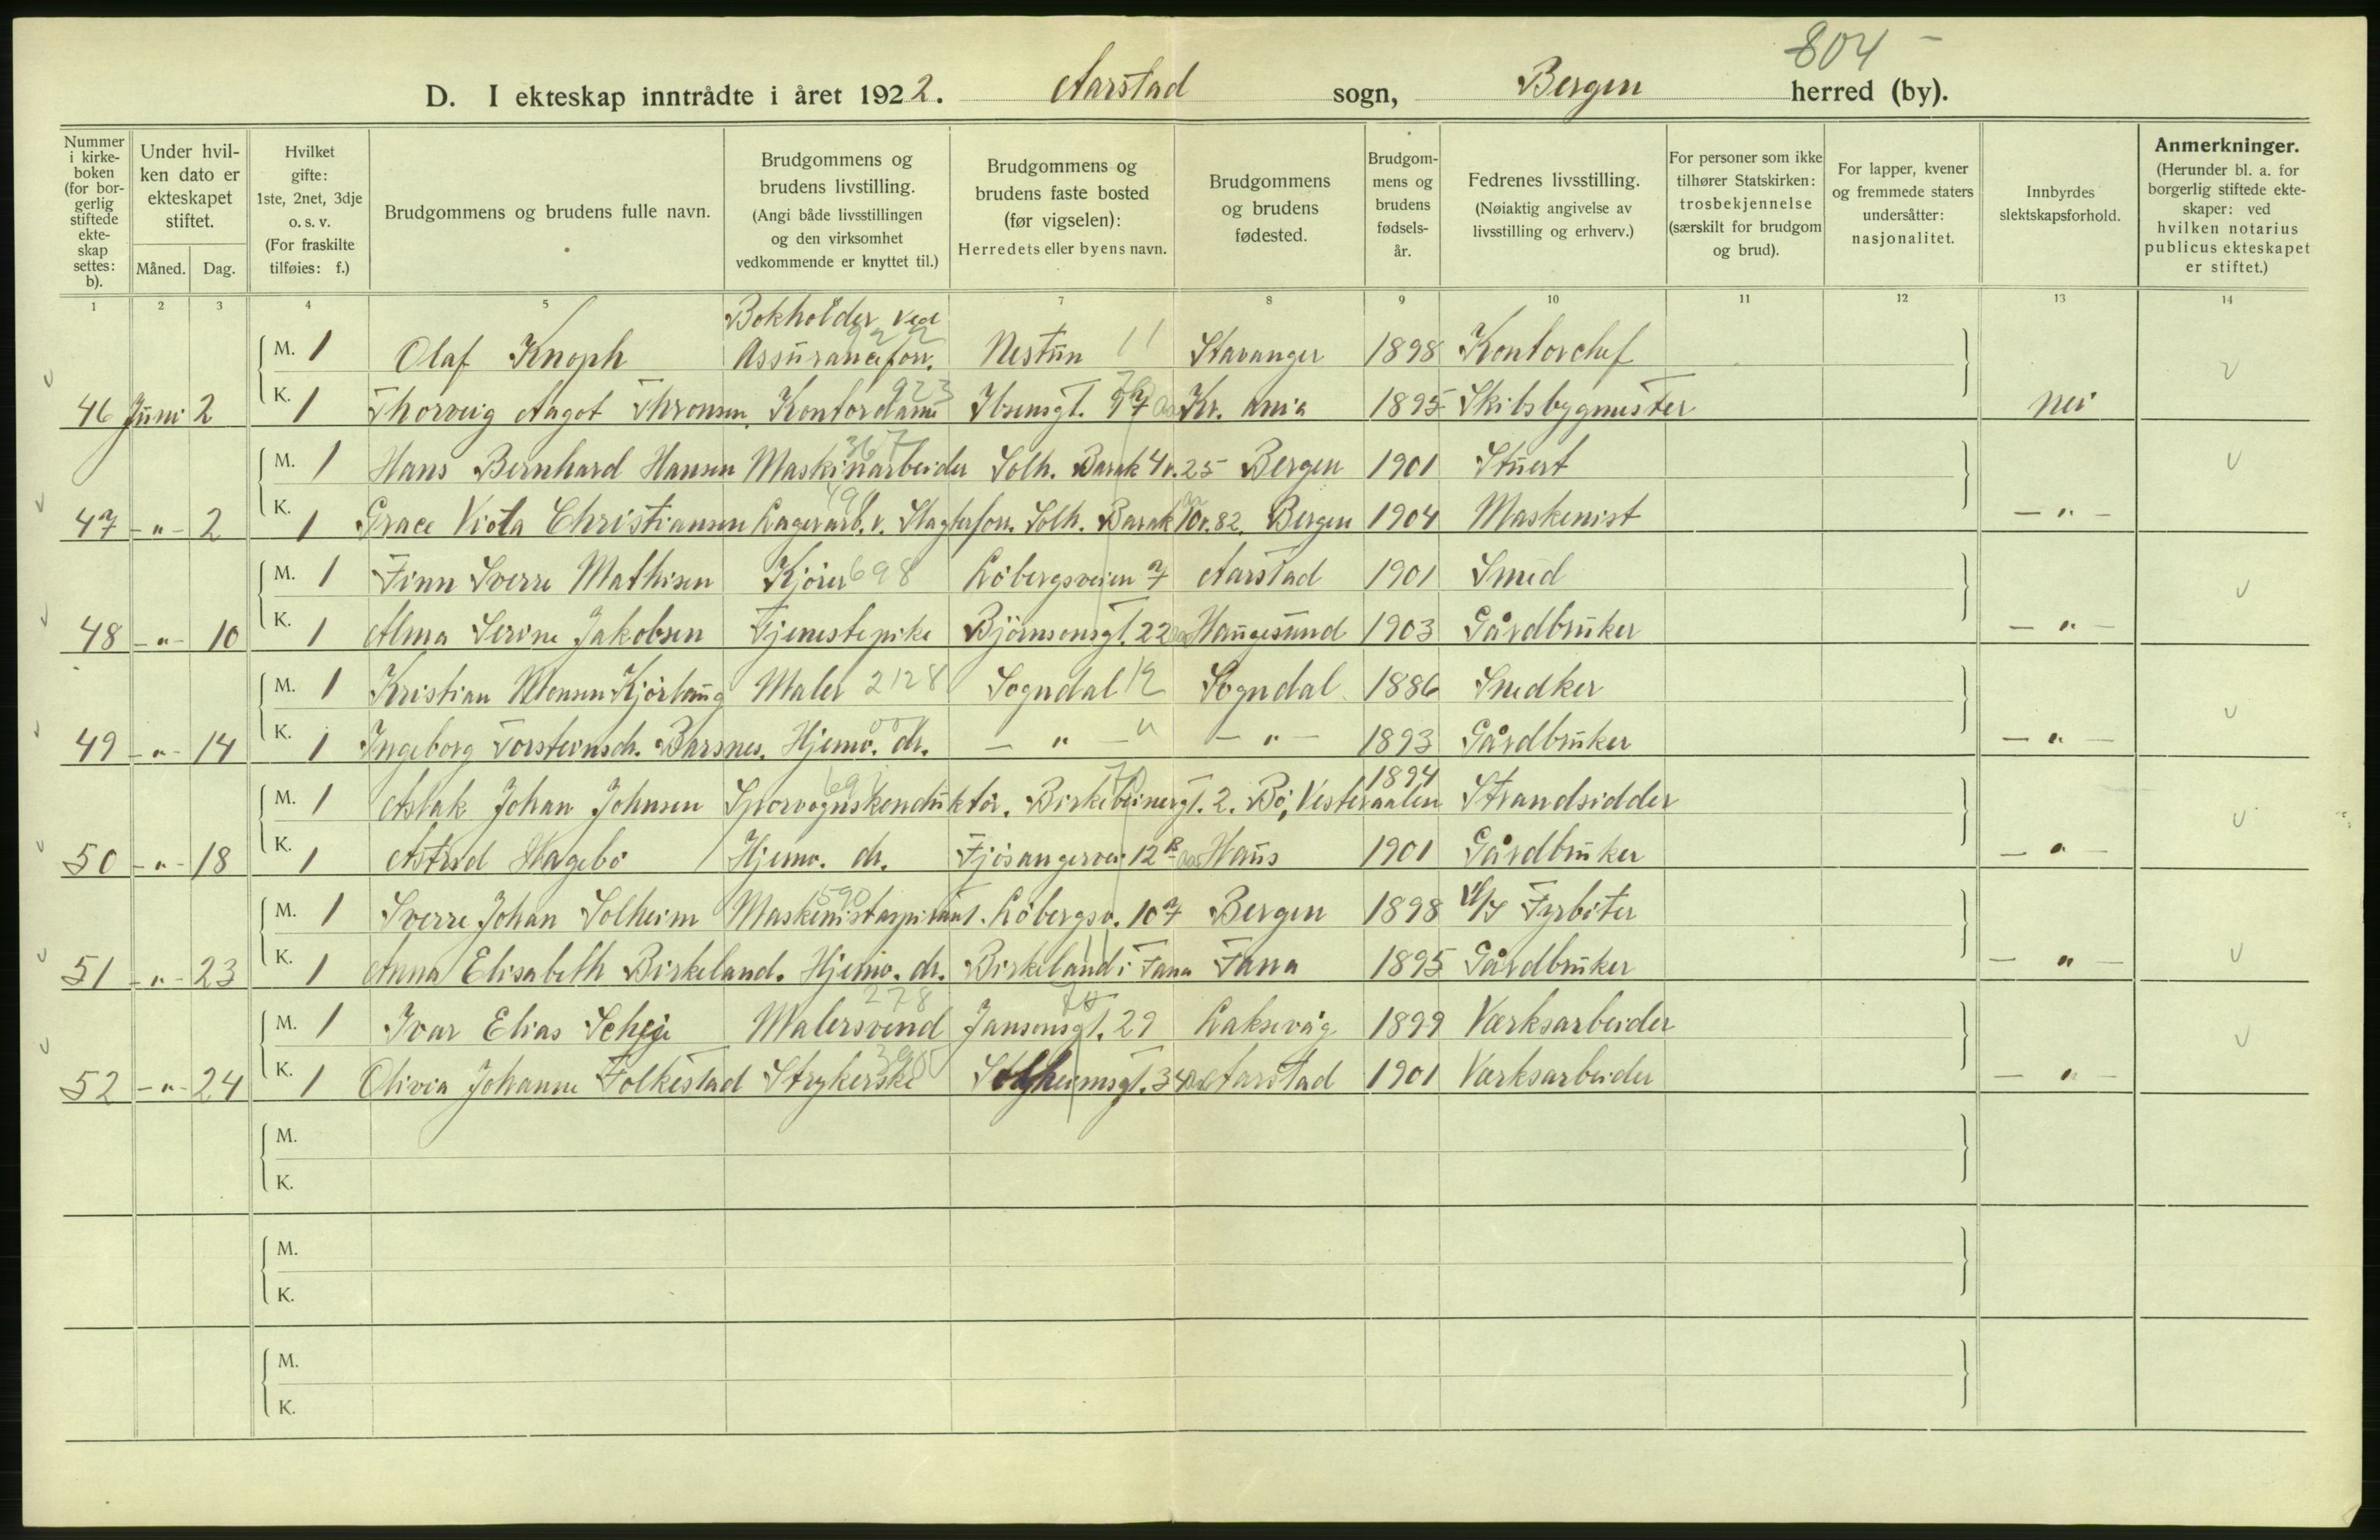 804 -
D. I ekteskap inntrådte i året 1922. Aarstad sogn, Bergen herred (by).
Nummer i kirkeboken (for borgerlig stiftede ekteskap settes: b).
Under hvilken dato er ekteskapet stiftet.
Måned. Dag.
Hvilket gifte: 1ste, 2net, 3dje o. s. v. (For fraskilte tilføies: f.)
Brudgommens og brudens fulle navn.
Brudgommens og brudens livstilling. (Angi både livsstillingen og den virksomhet vedkommende er knyttet til.)
Brudgommens og brudens faste bosted (før vigselen): Herredets eller byens navn.
Brudgommens og brudens fødested.
Brudgommens og brudens fødselsår.
Fedrenes livsstilling. (Nøiaktig angivelse av livsstilling og erhverv.)
For personer som ikke tilhører Statskirken: trosbekjennelse (særskilt for brudgom og brud).
For lapper, kvener og fremmede staters undersåtter: nasjonalitet.
Innbyrdes slektskapsforhold.
Anmerkninger. (Herunder bl. a. for borgerlig stiftede ekteskaper: ved hvilken notarius publicus ekteskapet er stiftet.)
1 2 3 4 5 7 8 9 10 11 12 13 14
M. 1 Olaf Knoph Bokholder ved Assuranceforr. 922 Nestun 11 Stavanger 1898 Kontorchef
46 Juni 2 K. 1 Thorveig Aagot Thronsen. Kontordame 923 Ibsensgt. 97 Kr. ania 1895 Skibsbygmester nei
M. 1 Hans Bernhard Hansen Maskinarbeider 367 Solh. Barak 4v. 25 Bergen 1901 Stuert
47 -"- 2 K. 1 Grace Viola Christiansen Lagerarb. v. Slagteforr. Solh. Barak 10v. 82. Bergen 1904 Maskenist -"-
M. 1 Finn Sverre Mathisen Kjører 698 Løbergsveien 7 Aarstad 1901 Smed
48 -"- 10 K. 1 Alma Serine Jakobsen Tjenestepike Bjørnsonsgt. 22 Haugesund 1903 Gårdbruker -"-
M. 1 Kristian Monsen Kjørlaug Maler 2128 Sogndal 12 Sogndal 1886 Snedker
49 -"- 14 K. 1 Ingeborg Torsteinsdr. Barsnes. Hjemv. dr. -"- -"- 1893 Gårdbruker -"-
M. 1 Aslak Johan Johnsen Sporvognskonduktør. Birkebeinergt. 2. Bø, Vesteraalen 1894 Strandsidder
50 -"- 18 K. 1 Astrid Hagebø Hjemv. dr. Fjøsangervei 12 B Haus 1901 Gårdbruker -"-
M. 1 Sverre Johan Solheim Maskenistaspirant. 590 Løbergsv. 107 Bergen 1898 Fyrbøter
51 -"- 23 K. 1 Anna Elisabeth Birkeland. Hjemv. dr. Birkeland i Fana Fana 1895 Gårdbruker -"-
M. 1 Ivar Elias Scheie Malersvend 278 Jansonsgt. 29 Laksevåg 1899 Værksarbeider
52 -"- 24 K. 1 Olivia Johanne Folkestad Strykerske Solheimsgt. 34 Aarstad 1901 Værksarbeider -"-
M.
K.
M.
K.
M.
K.